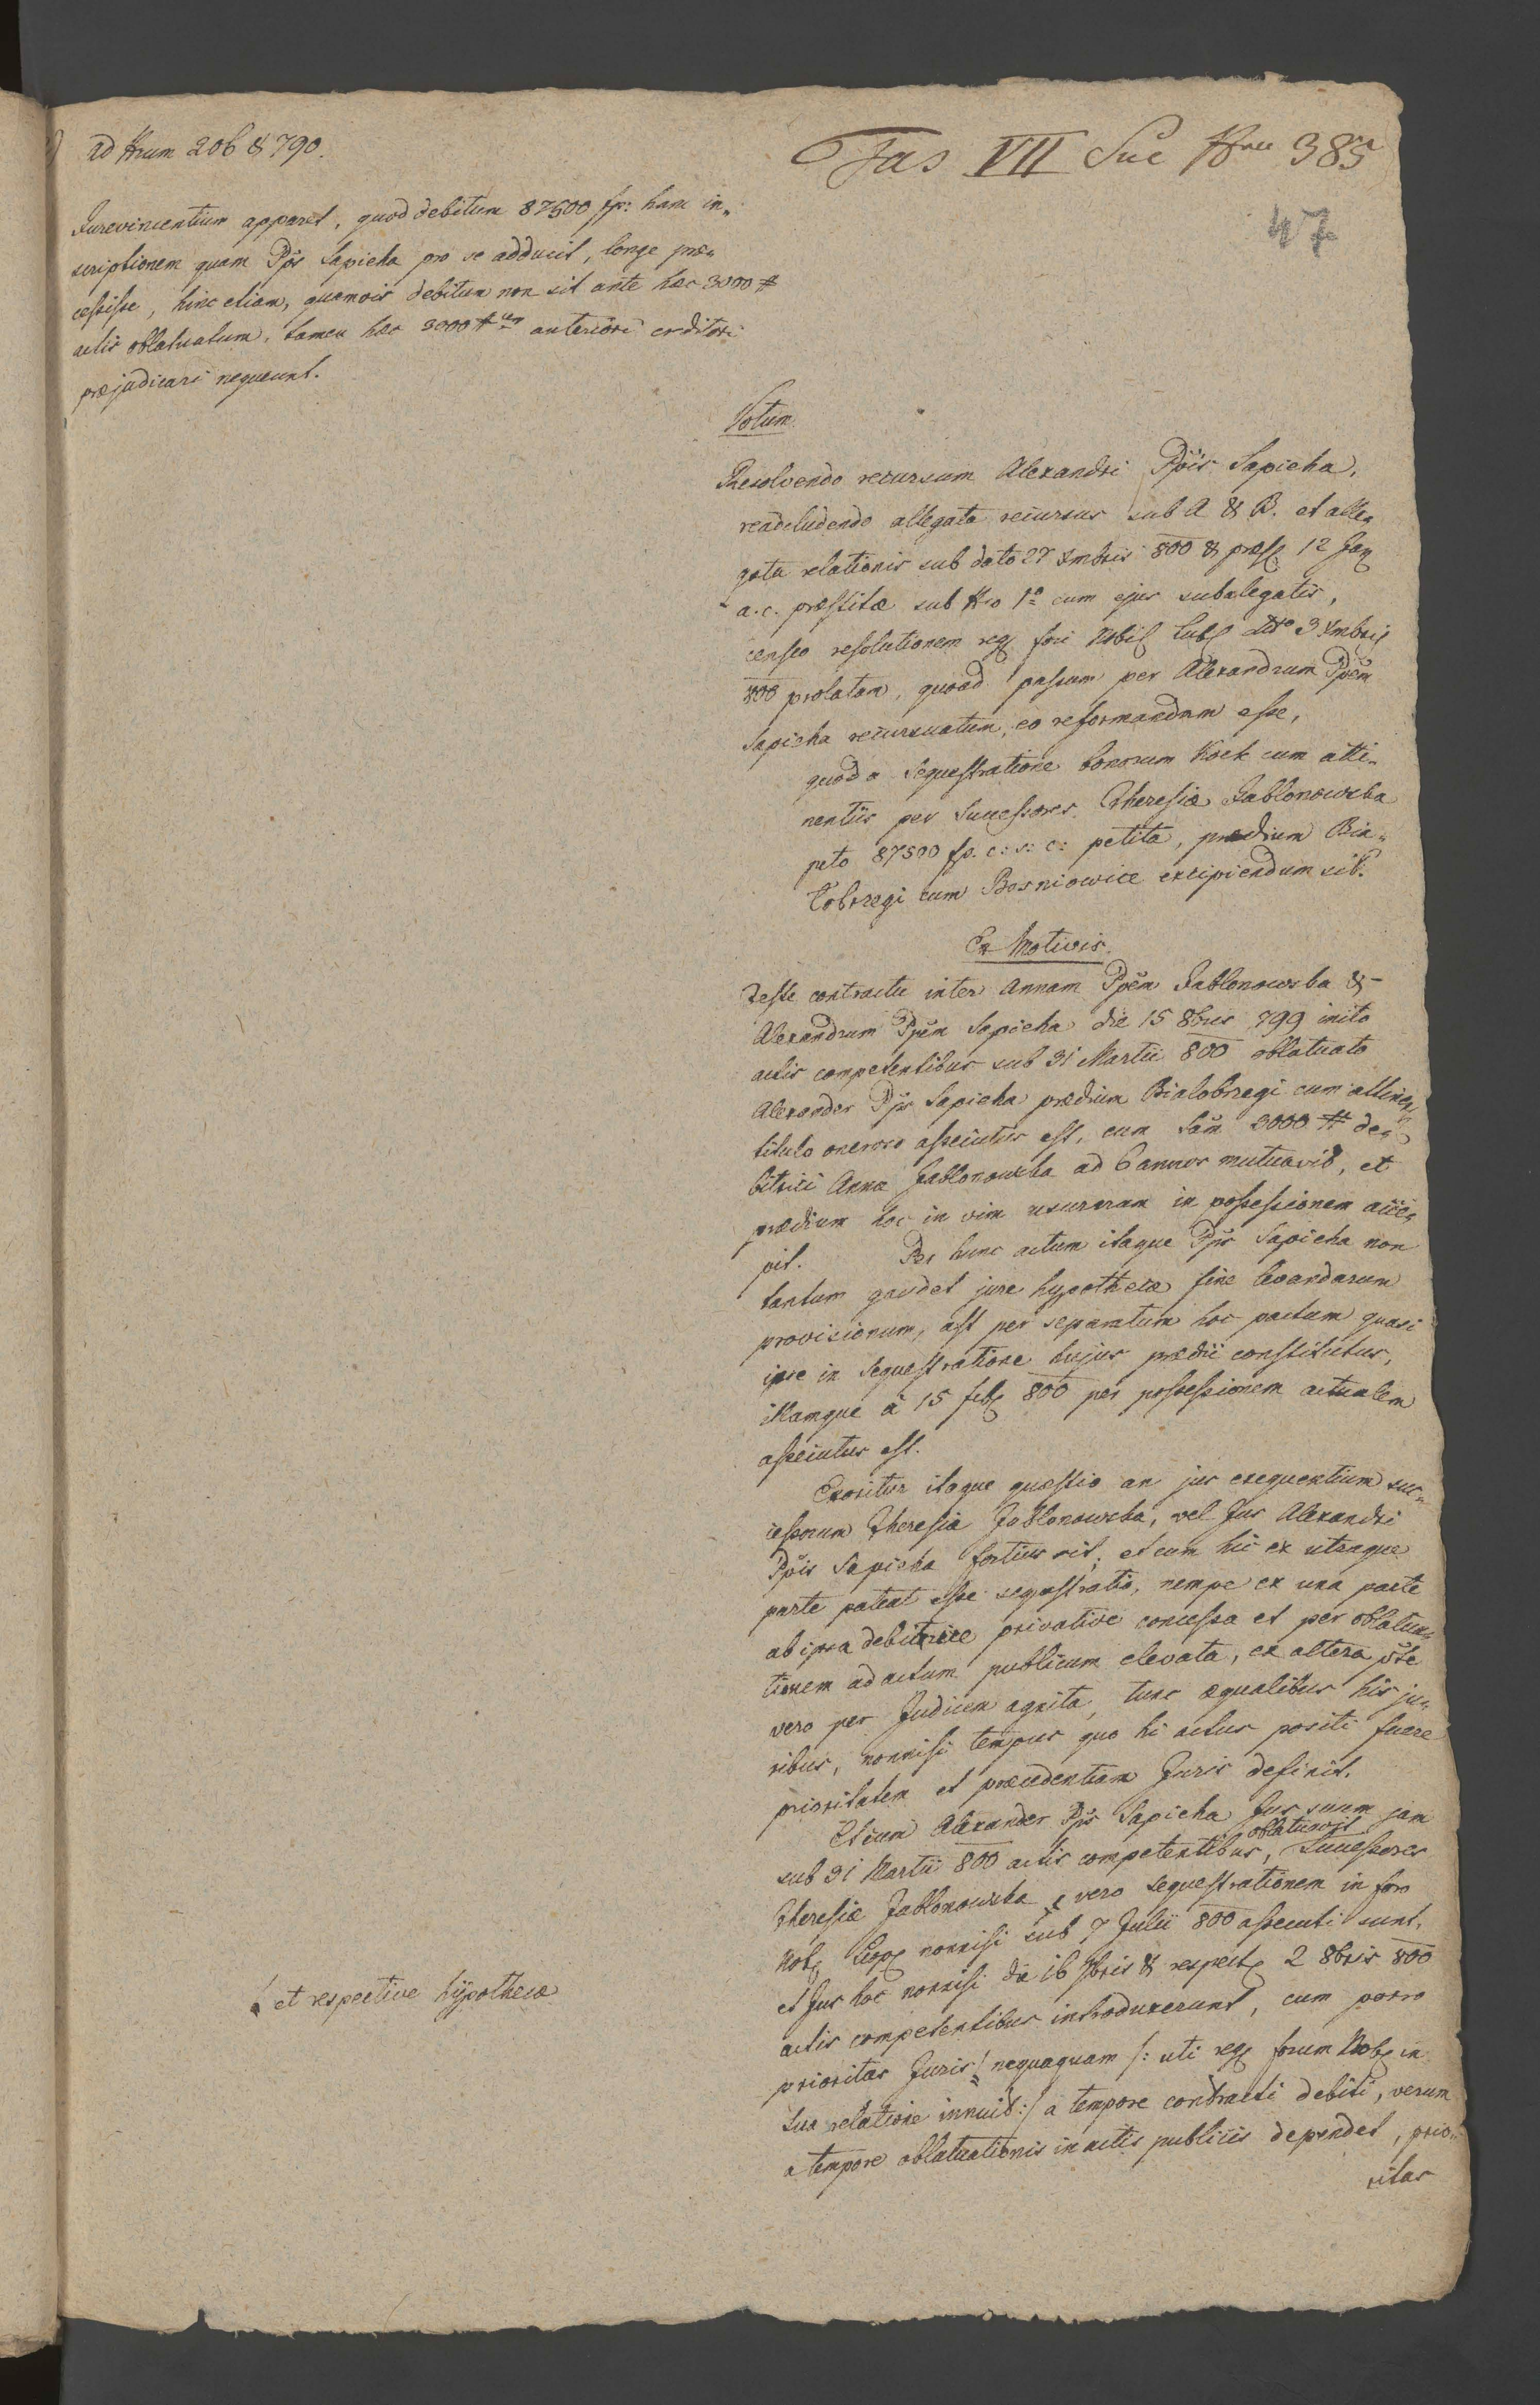 ad Nrum 206 & 790.
Fas VII Suc Nro 385
47
Jurevincentium apparet, quod debitum 87500 fp: hanc in„
scriptionem quam Pps Sapieha pro se adducit, longe præ„
cessisse, hinc etiam, quamvis debitum non sit ante hæc 3000 #
actis oblatuatum, tamen hæc 3000 # anteriori creditori
præjudicare nequeunt.
Votum.
Resolvendo recursum Alexandri Ppis Sapieha,
readcludendo allegata recursus sub A & B. et alle„
gata relationis sub dato 27 Xmbris 800 & præs 12 Jan
a. c. præstitæ sub Nro 1o cum ejus subalegatis,
censeo resolutionem reg fori Nobil Lubl dto 3 Xmbris
800 prolatam, quoad passum per Alexandrum Ppem
Sapieha recursuatum, eo reformandam esse,
quod a Sequestratione bonorum Kock cum atti„
nentiis per Successores Theresiæ Jablonowska
peto 87500 fp. c: s: c: petita, prædium Bia„
lobrzegi cum Bosniowice excipiendum sit.
Ex Motivis.
Teste contractu inter Annam Ppem Jablonowska &
Alexandrum Ppem Sapieha die 15 8bris 799 inito
actis competentibus sub 31 Martii 800 oblatuato
Alexander Pps Sapieha prædium Bialobrzegi cum attinen
titulo oneroso assecutus est, cum Sam 3000 # de„
bitrici Annæ Jablonowska ad 6 annos mutuavit, et
prædium hoc in vim usurarum in possessionem acce„
pit. Per hunc actum itaque Pps Sapieha non
tantum gaudet jure hypothecæ fine levandarum
provisionum, ast per separatum hoc pactum quasi
ipse in Sequestratione hujus prædii constitutus,
illamque à 15 feb 800 per possessionem actualem
assecutus est.
Exoritur itaque quæstio an jus exequentium suc„
cessorum Theresiæ Jablonowska, vel Jus Alexandri
Ppis Sapieha fortius sit; et cum hic ex utraque
parte pateat esse sequestratio, nempe ex una parte
ab ipsa debitrice privative concessa et per oblatua„
tionem ad actum publicum elevata, ex altera pte
vero per Judicem agnita, tunc æqualibus his ju„
ribus, nonnisi tempus quo hi actus positi fuere
prioritatem et præcedentiam Juris definit.
Et cum Alexander Pps Sapieha Jus suum jam
sub 31 Martii 800 actis competentibus, oblatuavit Successores
Theresiæ Jablonowska vero sequestrationem in foro
Nob Leop nonnisi sub 7 Julii 800 assecuti sunt,
et Jus hoc nonnisi die 16 7bris & respect 2 8bris 800
actis competentibus introduxerunt, cum porro
! et respective hÿpothecæ
prioritas Juris ! nequaquam /: uti reg forum Nob in
sua relatione innuit :/ a tempore contracti debiti, verum
a tempore oblatuationis in actis publicis dependet, prio„
ritas